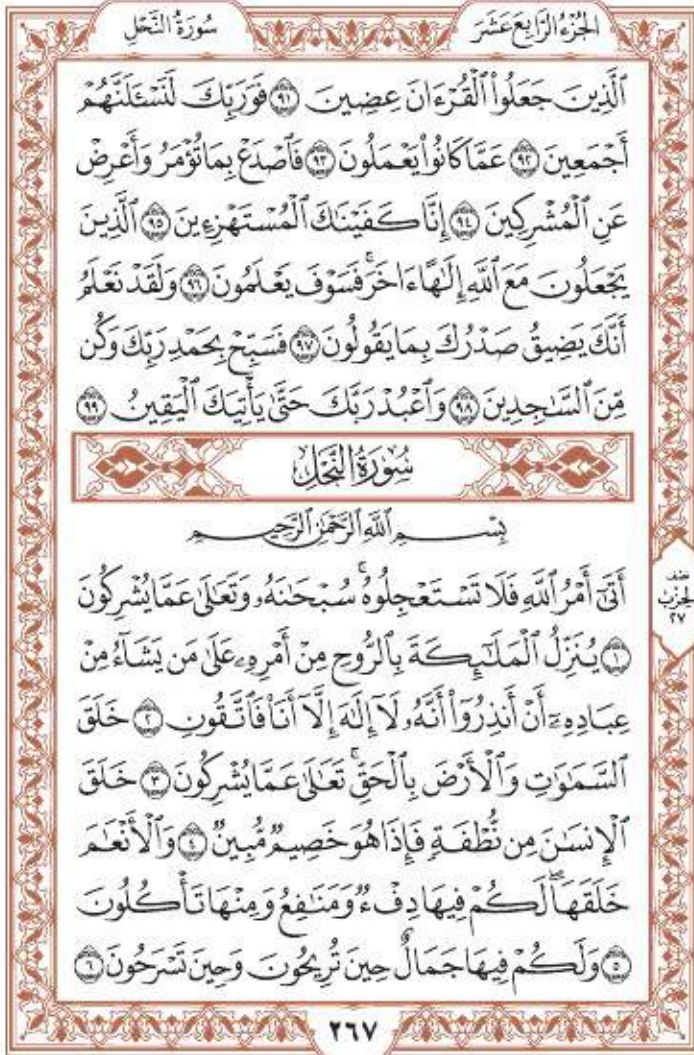 سُورَةُ النَّحْلِ
الجُزْءُ الرَّابِعَ عَشَرَ
ٱلَّذِينَ جَعَلُوا۟ ٱلْقُرْءَانَ عِضِينَ ۝٩١ فَوَرَبِّكَ لَنَسْـَٔلَنَّهُمْ
أَجْمَعِينَ ۝٩٢ عَمَّا كَانُوا۟ يَعْمَلُونَ ۝٩٣ فَٱصْدَعْ بِمَا تُؤْمَرُ وَأَعْرِضْ
عَنِ ٱلْمُشْرِكِينَ ۝٩٤ إِنَّا كَفَيْنَـٰكَ ٱلْمُسْتَهْزِءِينَ ۝٩٥ ٱلَّذِينَ
يَجْعَلُونَ مَعَ ٱللَّهِ إِلَـٰهًا ءَاخَرَ ۚ فَسَوْفَ يَعْلَمُونَ ۝٩٦ وَلَقَدْ نَعْلَمُ
أَنَّكَ يَضِيقُ صَدْرُكَ بِمَا يَقُولُونَ ۝٩٧ فَسَبِّحْ بِحَمْدِ رَبِّكَ وَكُن
مِّنَ ٱلسَّـٰجِدِينَ ۝٩٨ وَٱعْبُدْ رَبَّكَ حَتَّىٰ يَأْتِيَكَ ٱلْيَقِينُ ۝٩٩
سُورَةُ النَّحْلِ
بِسْمِ ٱللَّهِ ٱلرَّحْمَـٰنِ ٱلرَّحِيمِ
أَتَىٰٓ أَمْرُ ٱللَّهِ فَلَا تَسْتَعْجِلُوهُ ۚ سُبْحَـٰنَهُۥ وَتَعَـٰلَىٰ عَمَّا يُشْرِكُونَ
۝١ يُنَزِّلُ ٱلْمَلَـٰٓئِكَةَ بِٱلرُّوحِ مِنْ أَمْرِهِۦ عَلَىٰ مَن يَشَآءُ مِنْ
عِبَادِهِۦٓ أَنْ أَنذِرُوٓا۟ أَنَّهُۥ لَآ إِلَـٰهَ إِلَّآ أَنَا۠ فَٱتَّقُونِ ۝٢ خَلَقَ
ٱلسَّمَـٰوَٰتِ وَٱلْأَرْضَ بِٱلْحَقِّ ۚ تَعَـٰلَىٰ عَمَّا يُشْرِكُونَ ۝٣ خَلَقَ
ٱلْإِنسَـٰنَ مِن نُّطْفَةٍ فَإِذَا هُوَ خَصِيمٌ مُّبِينٌ ۝٤ وَٱلْأَنْعَـٰمَ
خَلَقَهَا ۗ لَكُمْ فِيهَا دِفْءٌ وَمَنَـٰفِعُ وَمِنْهَا تَأْكُلُونَ
۝٥ وَلَكُمْ فِيهَا جَمَالٌ حِينَ تُرِيحُونَ وَحِينَ تَسْرَحُونَ ۝٦
نصف
الحزب
٢٧
٢٦٧